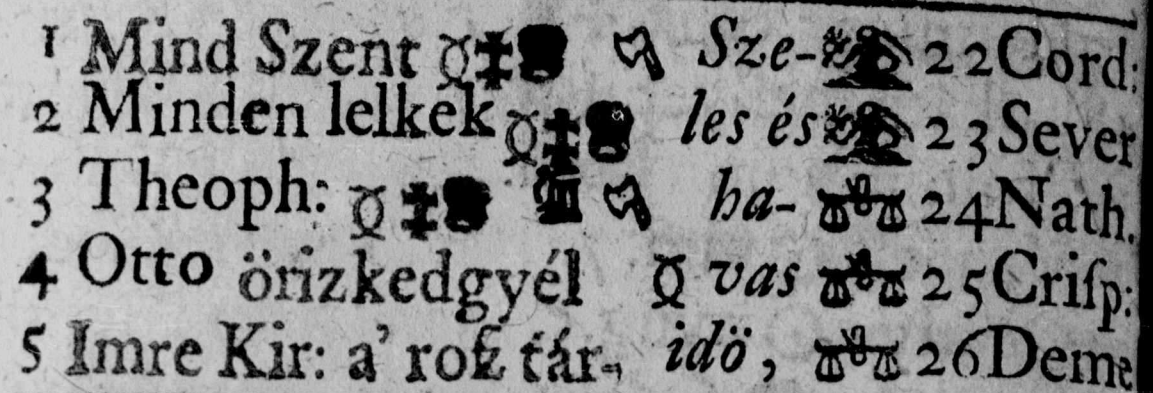 1 Mind Szent Sze- 22 Cord:
2 Minden lelkek les és 23 Sever
3 Theoph: ha- 24 Nath.
4 Otto örizkedgyél vas 25 Criſp:
5 Imre Kir: a' roſz tár- idö, 26 Deme